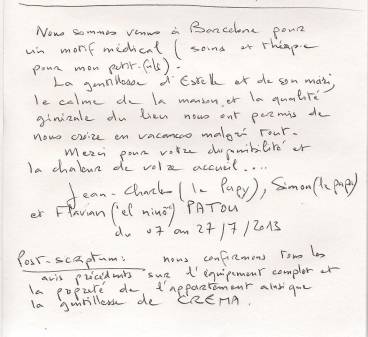 Nous sommes venus à Barcelone pour
un motif médical (soins et thérapie
pour mon petit-fils).
La gentillesse d'Estelle et de son mari,
le calme de la maison, et la qualité
générale du lieu nous ont permis de
nous croire en vacances malgré tout.
Merci pour votre disponibilité et
la chaleur de votre accueil....
Jean-Charles (le Papy), Simon (le papa)
et Flavian ("el niño") PATOU
du 07 au 27/7/2013
Post-scriptum: nous confirmons tous les
avis précédents sur l'équipement complet et
la propreté de l'appartement ainsi que
la gentillesse de CREMA.